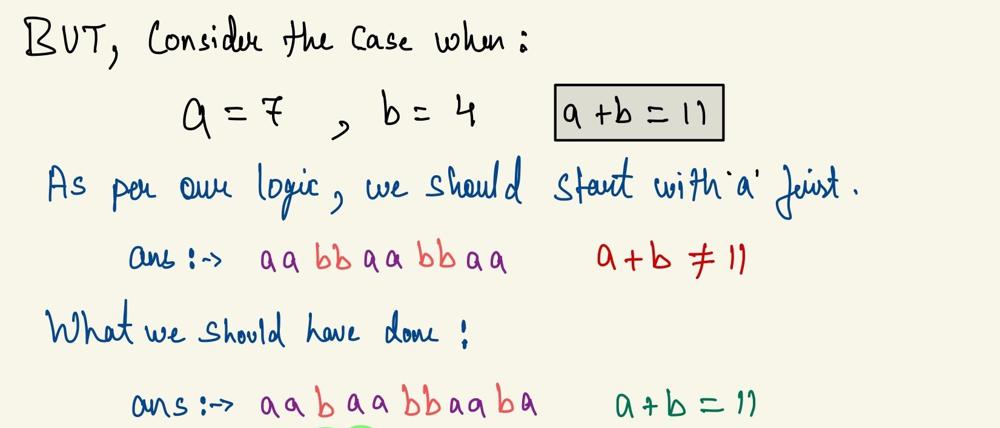 BUT, Consider the case when :
a = 7 , b = 4 a + b = 11
As per our logic, we should start with 'a' first.
ans :-> aa bb aa bb aa a + b ≠ 11
What we should have done :
ans :-> aa b aa bb aa b a a + b = 11